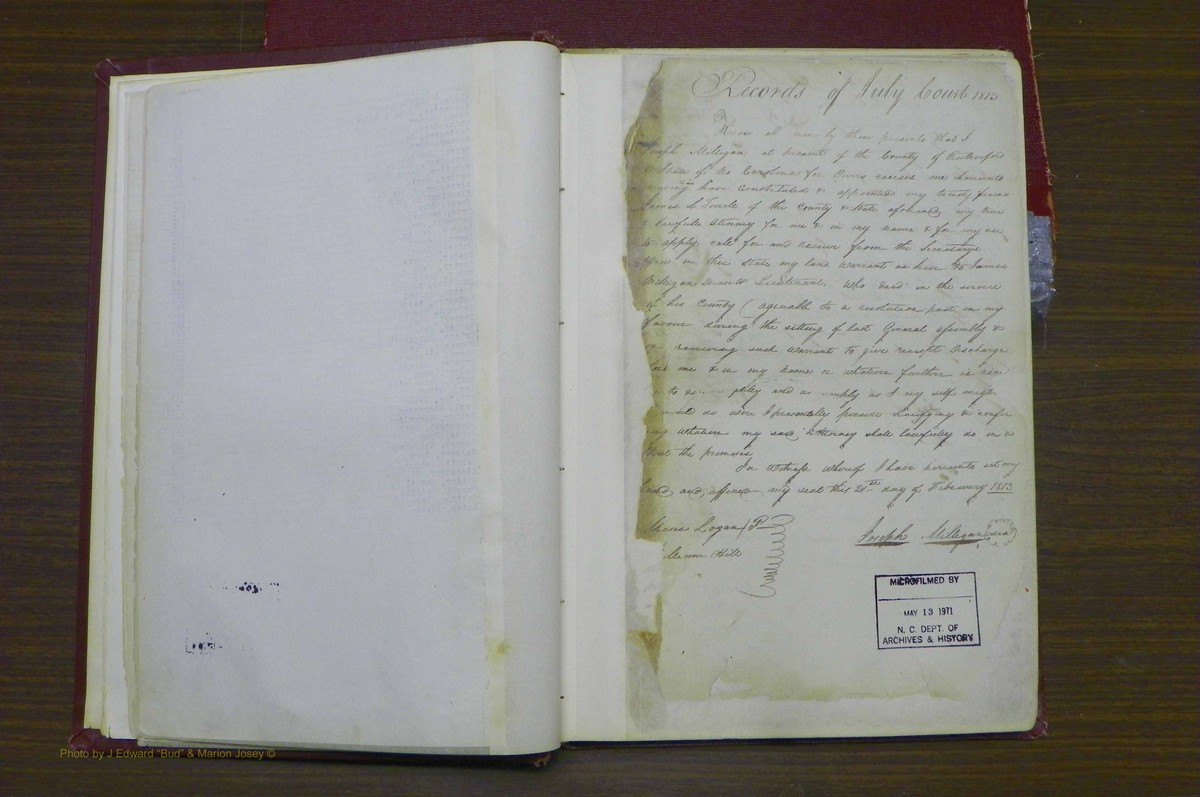 Records of July Court 1813
Know all men by these presents that I
Joseph Milligan at present of the County of Rutherford
& State of No Carolina for Divers causes me hereunto
moving have Constituted & appointed my trusty friend
James L Terrele of the County & State aforesaid my true
& lawfull Attorney for me & in my name & for my use
to apply call for and receive from the Secretarys
office in this State my land Warrant as heir to James
Milligan Lieutenant, Who died in the service
of his County (agreeable to a resolution past in my
favour during the sitting of last General assembly &
on receiving such warrant to give receipt Discharge
for me & in my name or whatever further is
to as and as amply as I my self might
could do were I presentally Ratifying &
whatever my said Attorney shall lawfully do in &
about the premises
In Witness whereof I have hereunto set my
hand and affixed my seal this 21st day of February 1813
Logan JP
William Hill
Joseph Milligan seal
MICROFILMED BY
MAY 13 1971
N. C. DEPT. OF
ARCHIVES & HISTORY
Photo by J Edward "Bud" & Marion Josey ©